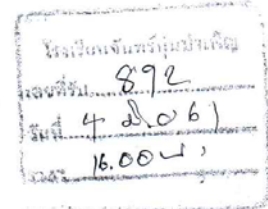 โรงเรียนจันทร์หุ่นบำเพ็ญ
เลขที่รับ 892
วันที่ 4 มิ.ย 61
เวลา 16.00 น.